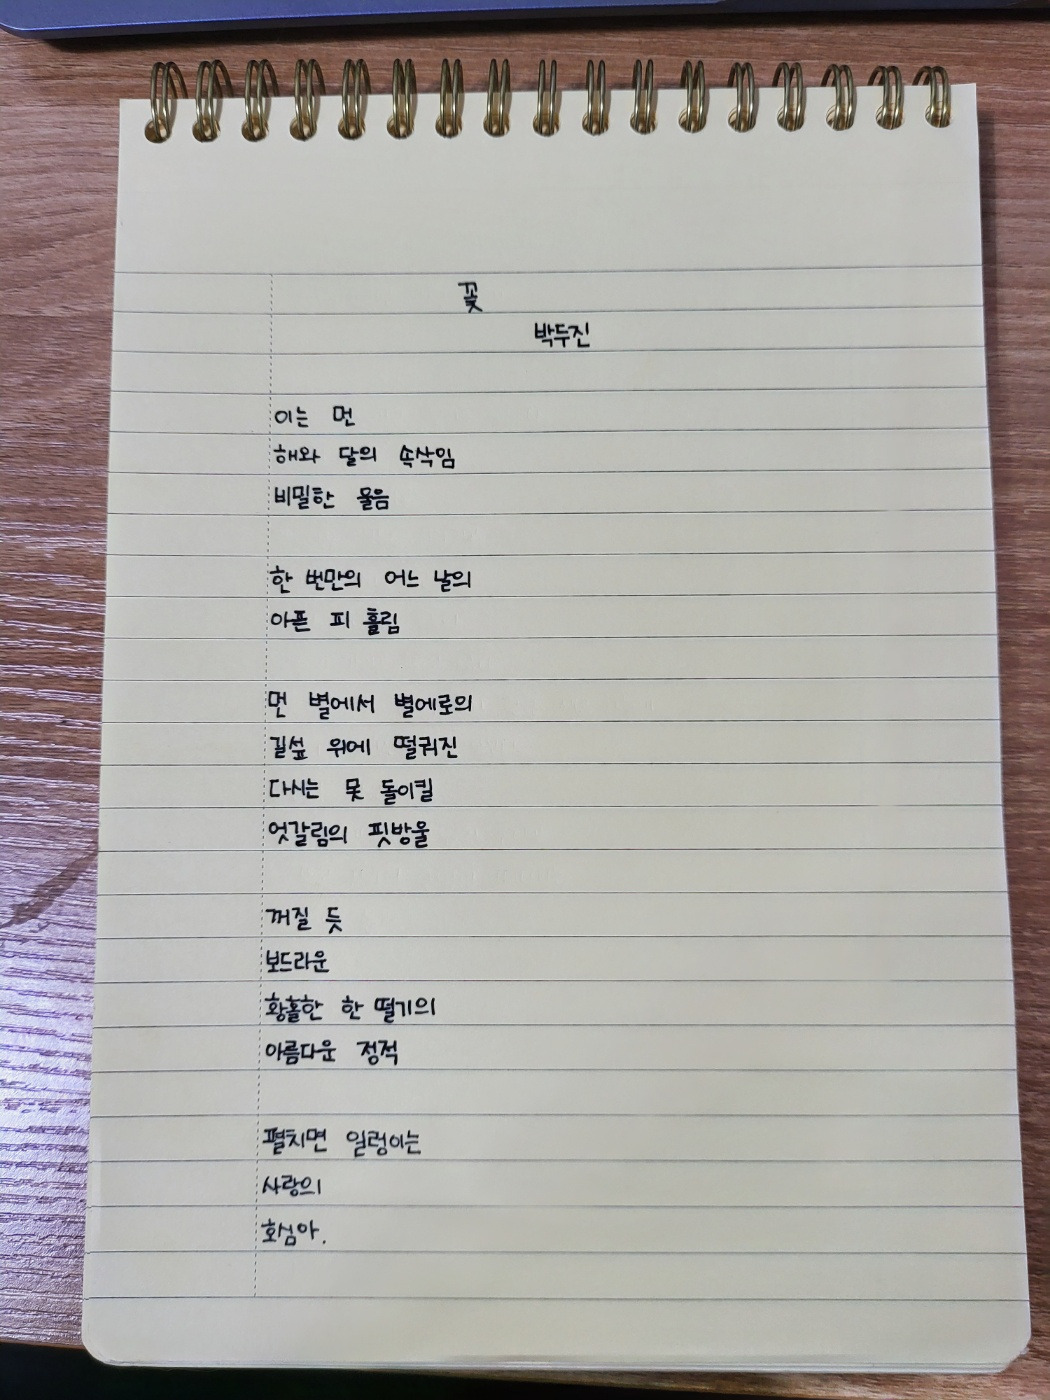 꽃
박두진
이는 먼
해와 달의 속삭임
비밀한 울음
한 번만의 어느 날의
아픈 피 흘림
먼 별에서 별에로의
길섶 위에 떨궈진
다시는 못 돌이킬
엇갈림의 핏방울
꺼질 듯
보드라운
황홀한 한 떨기의
아름다운 정적
펼치면 일렁이는
사랑의
호심아.